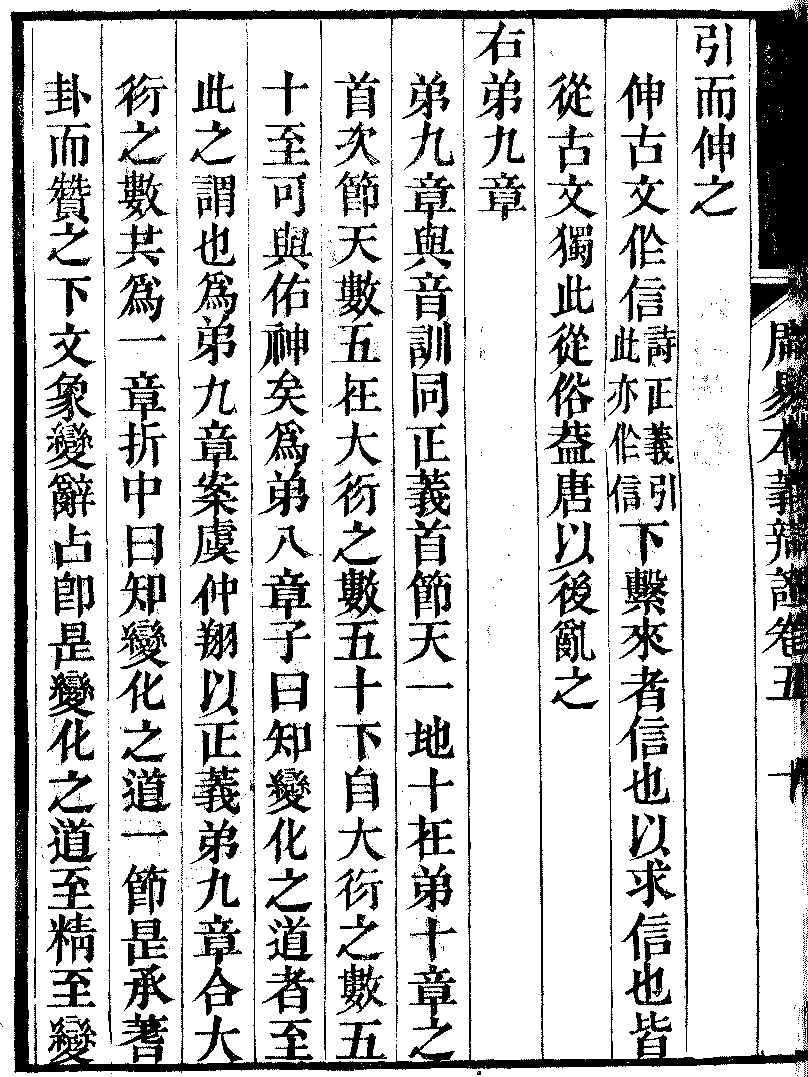 周易本義辯證卷五
十
引而伸之
伸古文作信詩正義引此亦作信下繫來者信也以求信也皆
從古文獨此從俗葢唐以後亂之
右弟九章
弟九章與音訓同正義首節天一地十在弟十章之
首次節天數五在大衍之數五十下自大衍之數五
十至可與佑神矣為弟八章子曰知變化之道者至
此之謂也為弟九章案虞仲翔以正義弟九章合大
衍之數共為一章折中曰知變化之道一節是承蓍
卦而贊之下文象變辭占卽是變化之道至精至變